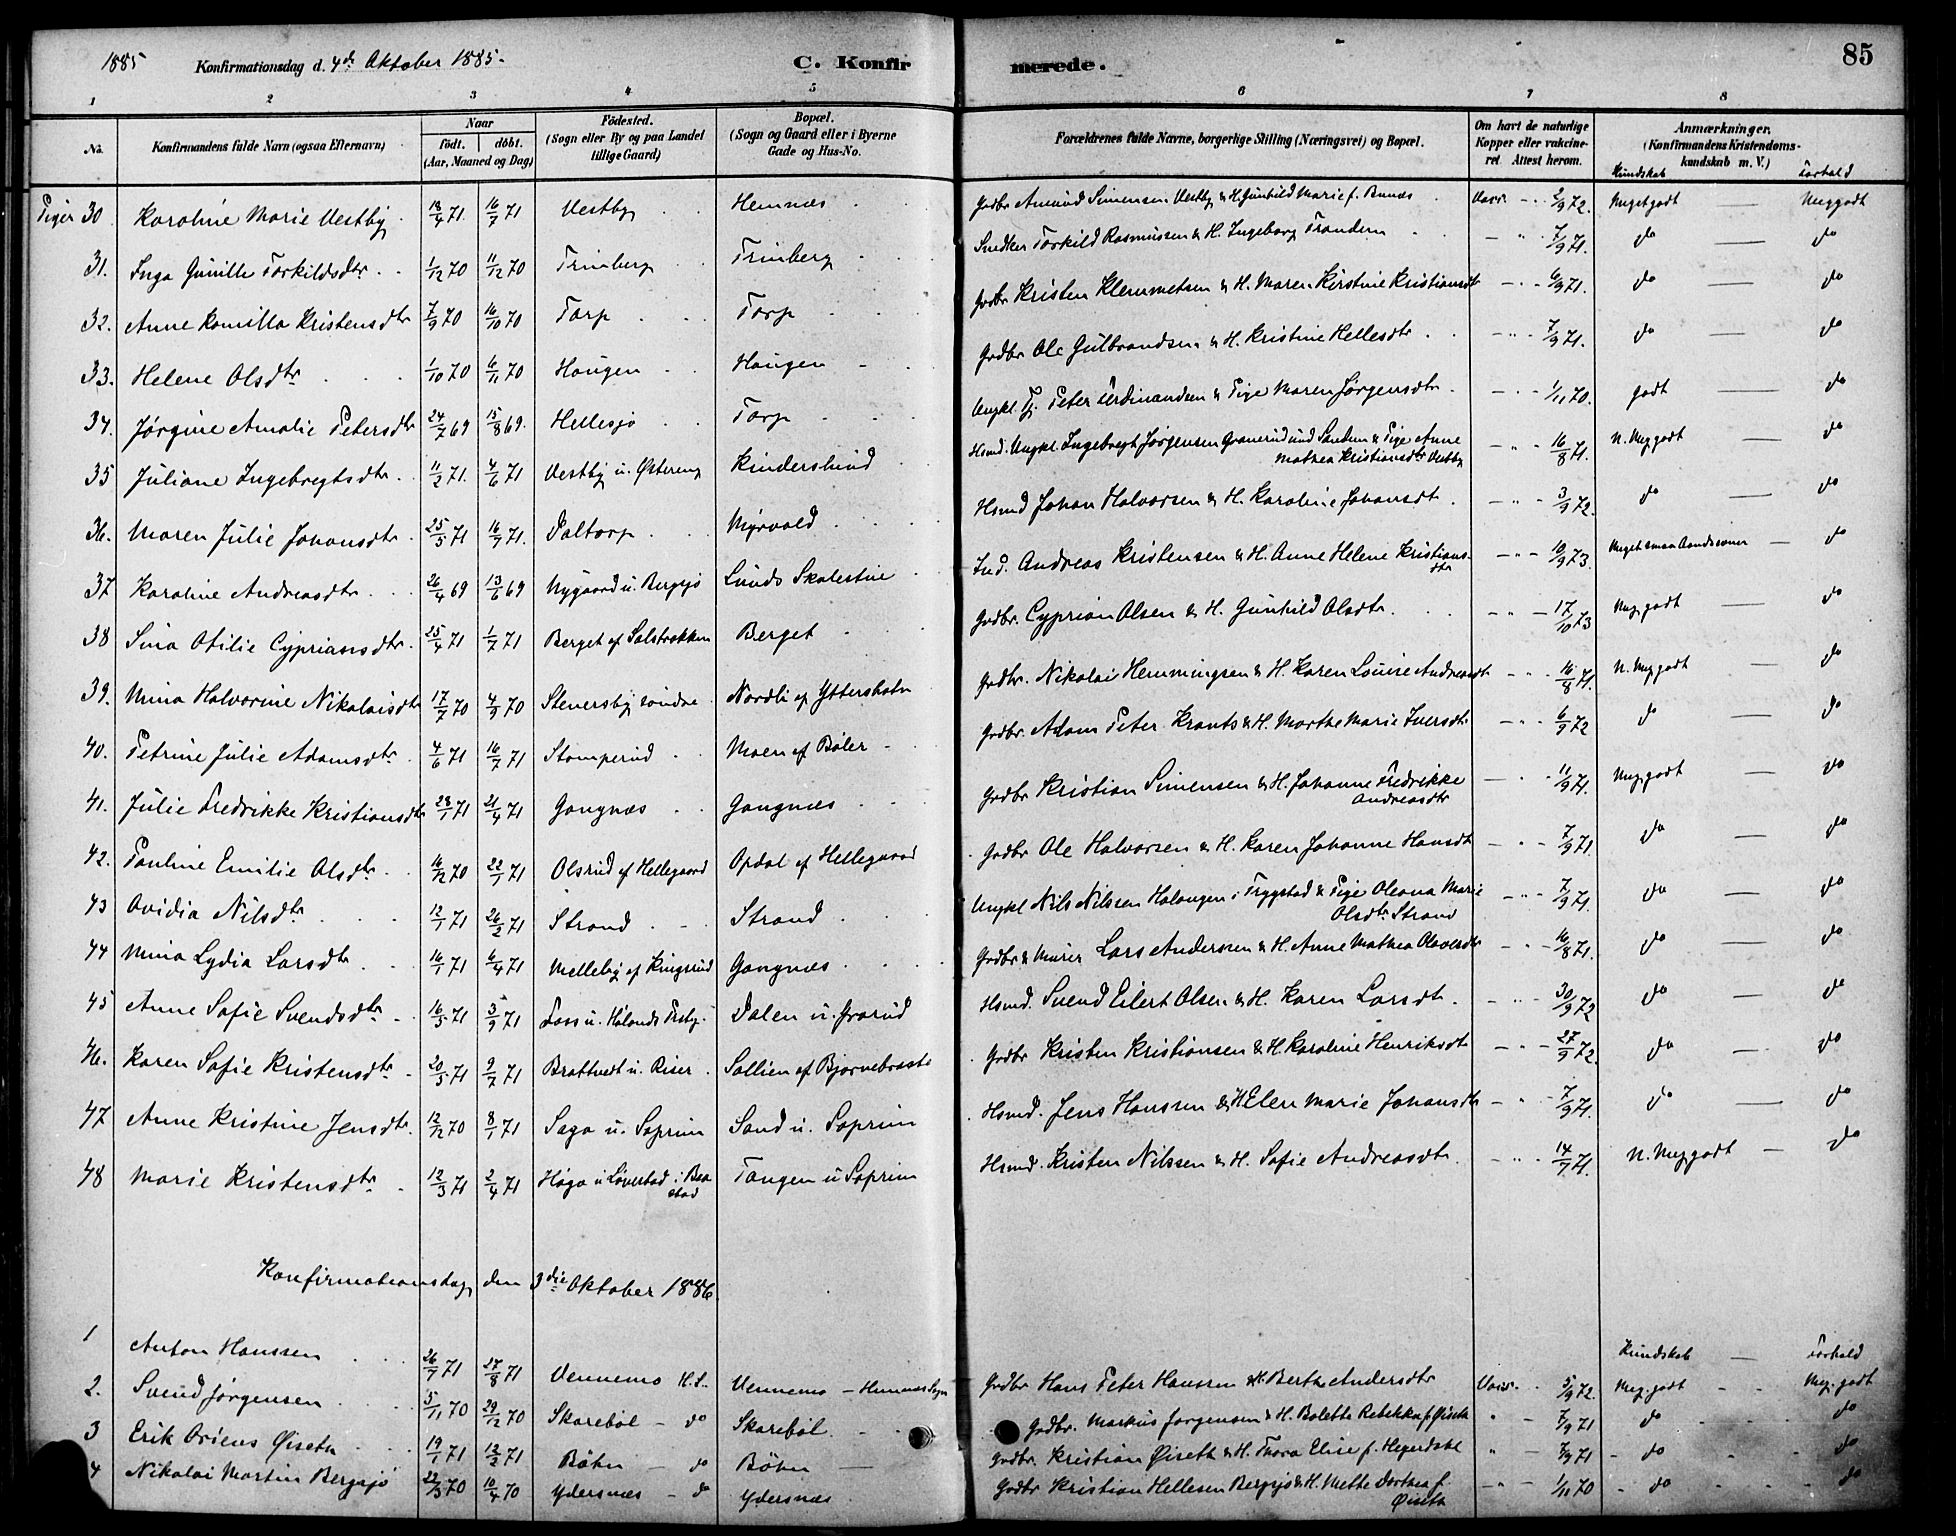 1885 Konfirmationsdag d. 4de Oktober 1885. C. Konfir merede. 85
1 2 3 4 5 6 7 8
No. Konfirmandens fulde Navn (ogsaa Efternavn) Naar født. døbt. (Aar, Maaned og Dag) Födested. (Sogn eller By og paa Landet tillige Gaard) Bopæl. (Sogn og Gaard eller i Byerne Gade og Hus-No. Forældrenes fulde Navne, borgerlige Stilling (Næringsvei) og Bopæl. Om havt de naturlige Kopper eller vakcineret. Attest herom. Anmærkninger. (Konfirmandens Kristendomskundskab m. V.) Kundskab Forhold
Piger 30 Karoline Marie Vestby 18/4 71 16/7 71 Vestby Hemnæs Grdbr Amund Simensen Vestby & H. Gunhild Marie f. Bunæs Vacc. 2/9 72. Meget godt Meg godt
31. Inga Gunille Torkildsdtr 1/12 70 11/12 70 Trinberg Trinberg Snedker Torkild Rasmussen & H. Ingeborg Trondsen 7/9 71. do do
32. Anne Kamilla Kristensdtr 7/9 70 16/10 70 Torp Torp Grdbr Kristen Klemmetsen & H. Maren Kirstine Kristiansdtr 6/9 71. do do
33. Helene Olsdtr 1/10 70 6/11 70 Haugen Haugen Grdbr Ole Gulbrandsen & H. Kristine Hellesdtr 7/9 71. do do
34. Jørgine Amalie Petersdtr 24/7 69 15/8 69. Hellesjø Torp Ungkl. Tj. Peter Ferdinandsen & Pige Maren Jørgensdtr 1/11 70. godt do
35 Juliane Ingebregtsdtr 11/2 71. 4/6 71 Vestby u. Østereng Kinderslund Hsmd. Ungkl. Ingebregt Jørgensen Granerud und Sanden & Pige Anne Mathea Kristiansdtr Vestby 16/8 71. N. Meg godt do
36. Maren Julie Johansdtr 25/5 71 16/7 71. Daltorp Myrvold Hsmd Johan Halvorsen & H. Karoline Johansdtr 3/9 72. do do
37 Karoline Andreasdtr 26/4 69 13/6 69 Nygaard u. Bergsjø Lunds Skolestue Ind. Andreas Kristensen & H. Anne Helene Kristiansdtr 10/9 73. Meget smaa Aandsevner do
38 Sina Otilie Cypriansdtr 25/4 71 1/7 71 Berget af Solstrokken Berget Grdbr. Cyprian Olsen & H. Gunhild Olsdtr. 17/10 73 Meg. godt do
39. Mina Halvorine Nikolaisdtr 17/7 70 4/9 70 Stenersby søndre Nordli af Yttersholm Grdbr. Nikolai Hemmingsen & H. Karen Louise Andreasdtr 16/8 71. N. Meg godt do
40. Petrine Julie Adamsdtr 4/6 71 16/7 71 Stomperud Moen af Bøler Grdbr. Adam Peter Krants & H. Marthe Marie Iversdtr 6/9 72 do do
41. Julie Fredrikke Kristiansdtr 28/1 71 21/4 71 Gangnæs Gangnæs Grdbr Kristian Simensen & H. Johanne Fredrikke Andreasdtr 11/9 71. Meg. godt do
42. Pauline Emilie Olsdtr 16/12 70 22/1 71 Olsrud af Hellegaard Opdal af Hellegaard Grdbr Ole Halvorsen & H. Karen Johanne Hansdtr 7/9 71. do do
43 Ovidia Nilsdtr 12/1 71 26/2 71 Strand Strand Ungkl Nils Nilssen Halangen i Trygstad & Pige Oleana Marie Olsdtr Strand 7/9 71. do do
44 Mina Lydia Larsdtr 16/1 71 6/4 71 Melleby af Kingsrud Gangnæs Grdbr. & Murer Lars Anderssen & H. Anne Mathea Olavesdtr 16/8 71. do do
45 Anne Sofie Svendsdtr 16/5 71 3/9 71 Foss u. Hølands Prstg. Dalen u. Grorud Hsmd. Svend Eilert Olsen & H. Karen Larsdtr 30/9 72 do do
46. Karen Sofie Kristensdtr 20/5 71 9/7 71 Brattvedt u. Riser Sollien af Bjørnebraate Grdbr Kristen Kristiansen & H. Karoline Henriksdtr 27/9 72. do do
47 Anne Kristine Jensdtr. 12/12 70 8/1 71 Saga u. Soprim Sand u. Soprim Hsmd. Jens Hanssen & H. Elen Marie Johansdtr 7/9 71. do do
48 Marie Kristensdtr 12/3 71 2/4 71 Haga u Løverstad i Baastad Tangen u Soprim Hsmd. Kristen Nilssen & H. Sofie Andreasdtr. 14/7 71. N. Meg godt do
Konfirmationsdag den 3die Oktober 1886.
Kundskab Forhold
1 Anton Hanssen 26/7 71 27/8 71 Vennemo H. S. Vennemo - Hemnæs Sogn Grdbr Hans Peter Hanssen & H. Berthe Andersdtr Vacc. 5/9 72. Meg. godt Meg. godt
2. Svend Jørgensen 5/11 70 29/12 70 Skarebøl - do Skarebøl Grdbr. Markus Jørgensen & H. Bolette Rebekka f. Øiseth 7/9 71 do do
3 Erik Oriens Øiseth 19/1 71 12/2 71 Bøhn - do Bøhn Grdbr. Kristian Øiseth & H. Thora Elise f. Hegerdahl 7/9 71 do do
4 Nikolai Martin Bergsjø 22/3 70 10/4 70 Ydersnæs - do Ydersnæs Grdbr Kristian Hellesen Bergsjø & H. Mette Dorthea f. Øiseth 1/11 70 do do